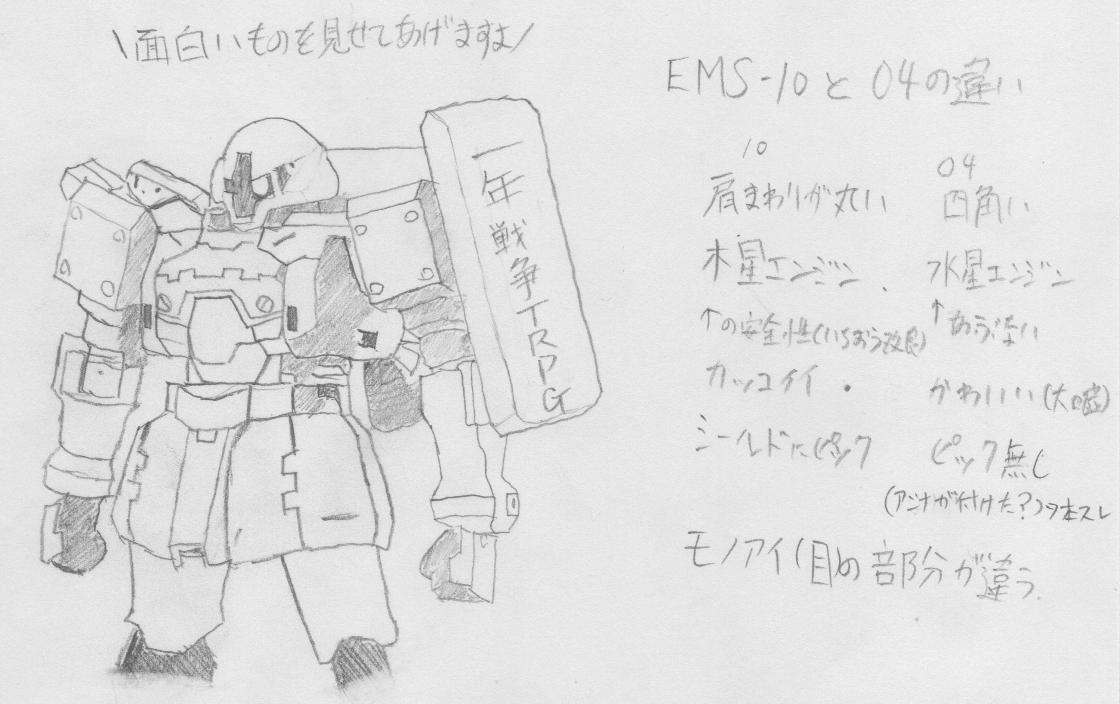 \面白いものを見せてあげますよ/
一年戦争TRPG
EMS-10と04の違い
10 04
肩まわりが丸い 四角い
木星エンジン 水星エンジン
↑の安全性(いちおう改良) ↑あぶない
カッコイイ・ かわいい(大嘘)
シールドにピック ピック無し
(アシナが付けた?)ヲ本スレ
モノアイ(目)の部分が違う.